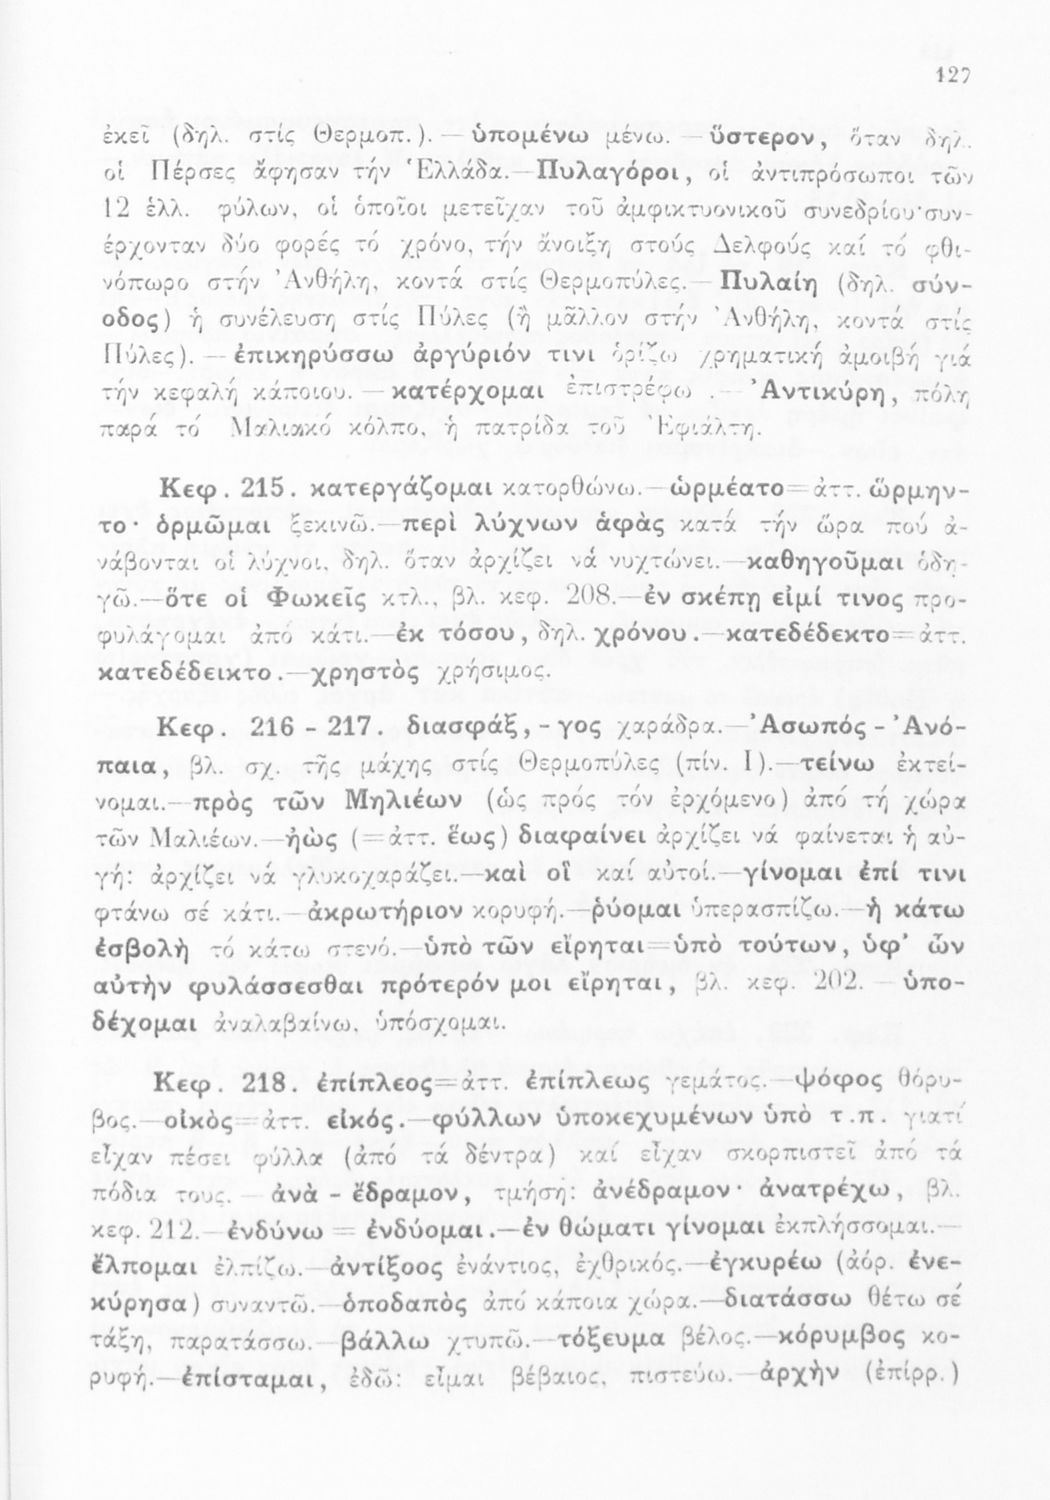 127
ἐκεῖ (δηλ. στίς Θερμοπ.).— ὑπομένω μένω. — ὕστερον, ὅταν δηλ.
οἱ Πέρσες ἄφησαν τήν Ἑλλάδα.— Πυλαγόροι, οἱ ἀντιπρόσωποι τῶν
12 ἑλλ. φύλων, οἱ ὁποῖοι μετεῖχαν τοῦ ἀμφικτυονικοῦ συνεδρίου· συν-
έρχονταν δύο φορές τό χρόνο, τήν ἄνοιξη στούς Δελφούς καί τό φθι-
νόπωρο στήν Ἀνθήλη, κοντά στίς Θερμοπύλες.— Πυλαίη (δηλ. σύν-
οδος) ἡ συνέλευση στίς Πύλες (ἤ μᾶλλον στήν Ἀνθήλη, κοντά στίς
Πύλες). — ἐπικηρύσσω ἀργύριόν τινι ὁρίζω χρηματική ἀμοιβή γιά
τήν κεφαλή κάποιου. — κατέρχομαι ἐπιστρέφω .— Ἀντικύρη, πόλη
παρά τό Μαλιακό κόλπο, ἡ πατρίδα τοῦ Ἐφιάλτη.
Κεφ. 215. κατεργάζομαι κατορθώνω.— ὡρμέατο = ἀττ. ὥρμην-
το· ὁρμῶμαι ξεκινῶ.— περὶ λύχνων ἁφὰς κατά τήν ὥρα πού ἀ-
νάβονται οἱ λύχνοι, δηλ. ὅταν ἀρχίζει νά νυχτώνει.— καθηγοῦμαι ὁδη-
γῶ.— ὅτε οἱ Φωκεῖς κτλ., βλ. κεφ. 208.— ἐν σκέπῃ εἰμί τινος προ-
φυλάγομαι ἀπό κάτι.— ἐκ τόσου, δηλ. χρόνου.— κατεδέδεκτο = ἀττ.
κατεδέδεικτο.— χρηστὸς χρήσιμος.
Κεφ. 216 - 217. διασφάξ, - γος χαράδρα.— Ἀσωπός - Ἀνό-
παια, βλ. σχ. τῆς μάχης στίς Θερμοπύλες (πίν. Ι).— τείνω ἐκτεί-
νομαι.— πρὸς τῶν Μηλιέων (ὡς πρός τόν ἐρχόμενο) ἀπό τή χώρα
τῶν Μαλιέων.— ἠὼς (= ἀττ. ἕως) διαφαίνει ἀρχίζει νά φαίνεται ἡ αὐ-
γή: ἀρχίζει νά γλυκοχαράζει.— καὶ οἳ καί αὐτοί.— γίνομαι ἐπί τινι
φτάνω σέ κάτι.— ἀκρωτήριον κορυφή.— ῥύομαι ὑπερασπίζω.— ἡ κάτω
ἐσβολὴ τό κάτω στενό.— ὑπὸ τῶν εἴρηται = ὑπὸ τούτων, ὑφ’ ὧν
αὐτὴν φυλάσσεσθαι πρότερόν μοι εἴρηται, βλ. κεφ. 202. — ὑπο-
δέχομαι ἀναλαβαίνω, ὑπόσχομαι.
Κεφ. 218. ἐπίπλεος = ἀττ. ἐπίπλεως γεμάτος.— ψόφος θόρυ-
βος.— οἰκὸς = ἀττ. εἰκός.— φύλλων ὑποκεχυμένων ὑπὸ τ.π. γιατί
εἶχαν πέσει φύλλα (ἀπό τά δέντρα) καί εἶχαν σκορπιστεῖ ἀπό τά
πόδια τους. — ἀνὰ - ἔδραμον, τμήση: ἀνέδραμον· ἀνατρέχω, βλ.
κεφ. 212.— ἐνδύνω = ἐνδύομαι.— ἐν θώματι γίνομαι ἐκπλήσσομαι.—
ἔλπομαι ἐλπίζω.— ἀντίξοος ἐνάντιος, ἐχθρικός.— ἐγκυρέω (ἀόρ. ἐνε-
κύρησα) συναντῶ.— ὁποδαπὸς ἀπό κάποια χώρα.— διατάσσω θέτω σέ
τάξη, παρατάσσω.— βάλλω χτυπῶ.— τόξευμα βέλος.— κόρυμβος κο-
ρυφή.— ἐπίσταμαι, ἐδῶ: εἶμαι βέβαιος, πιστεύω.— ἀρχὴν (ἐπίρρ.)